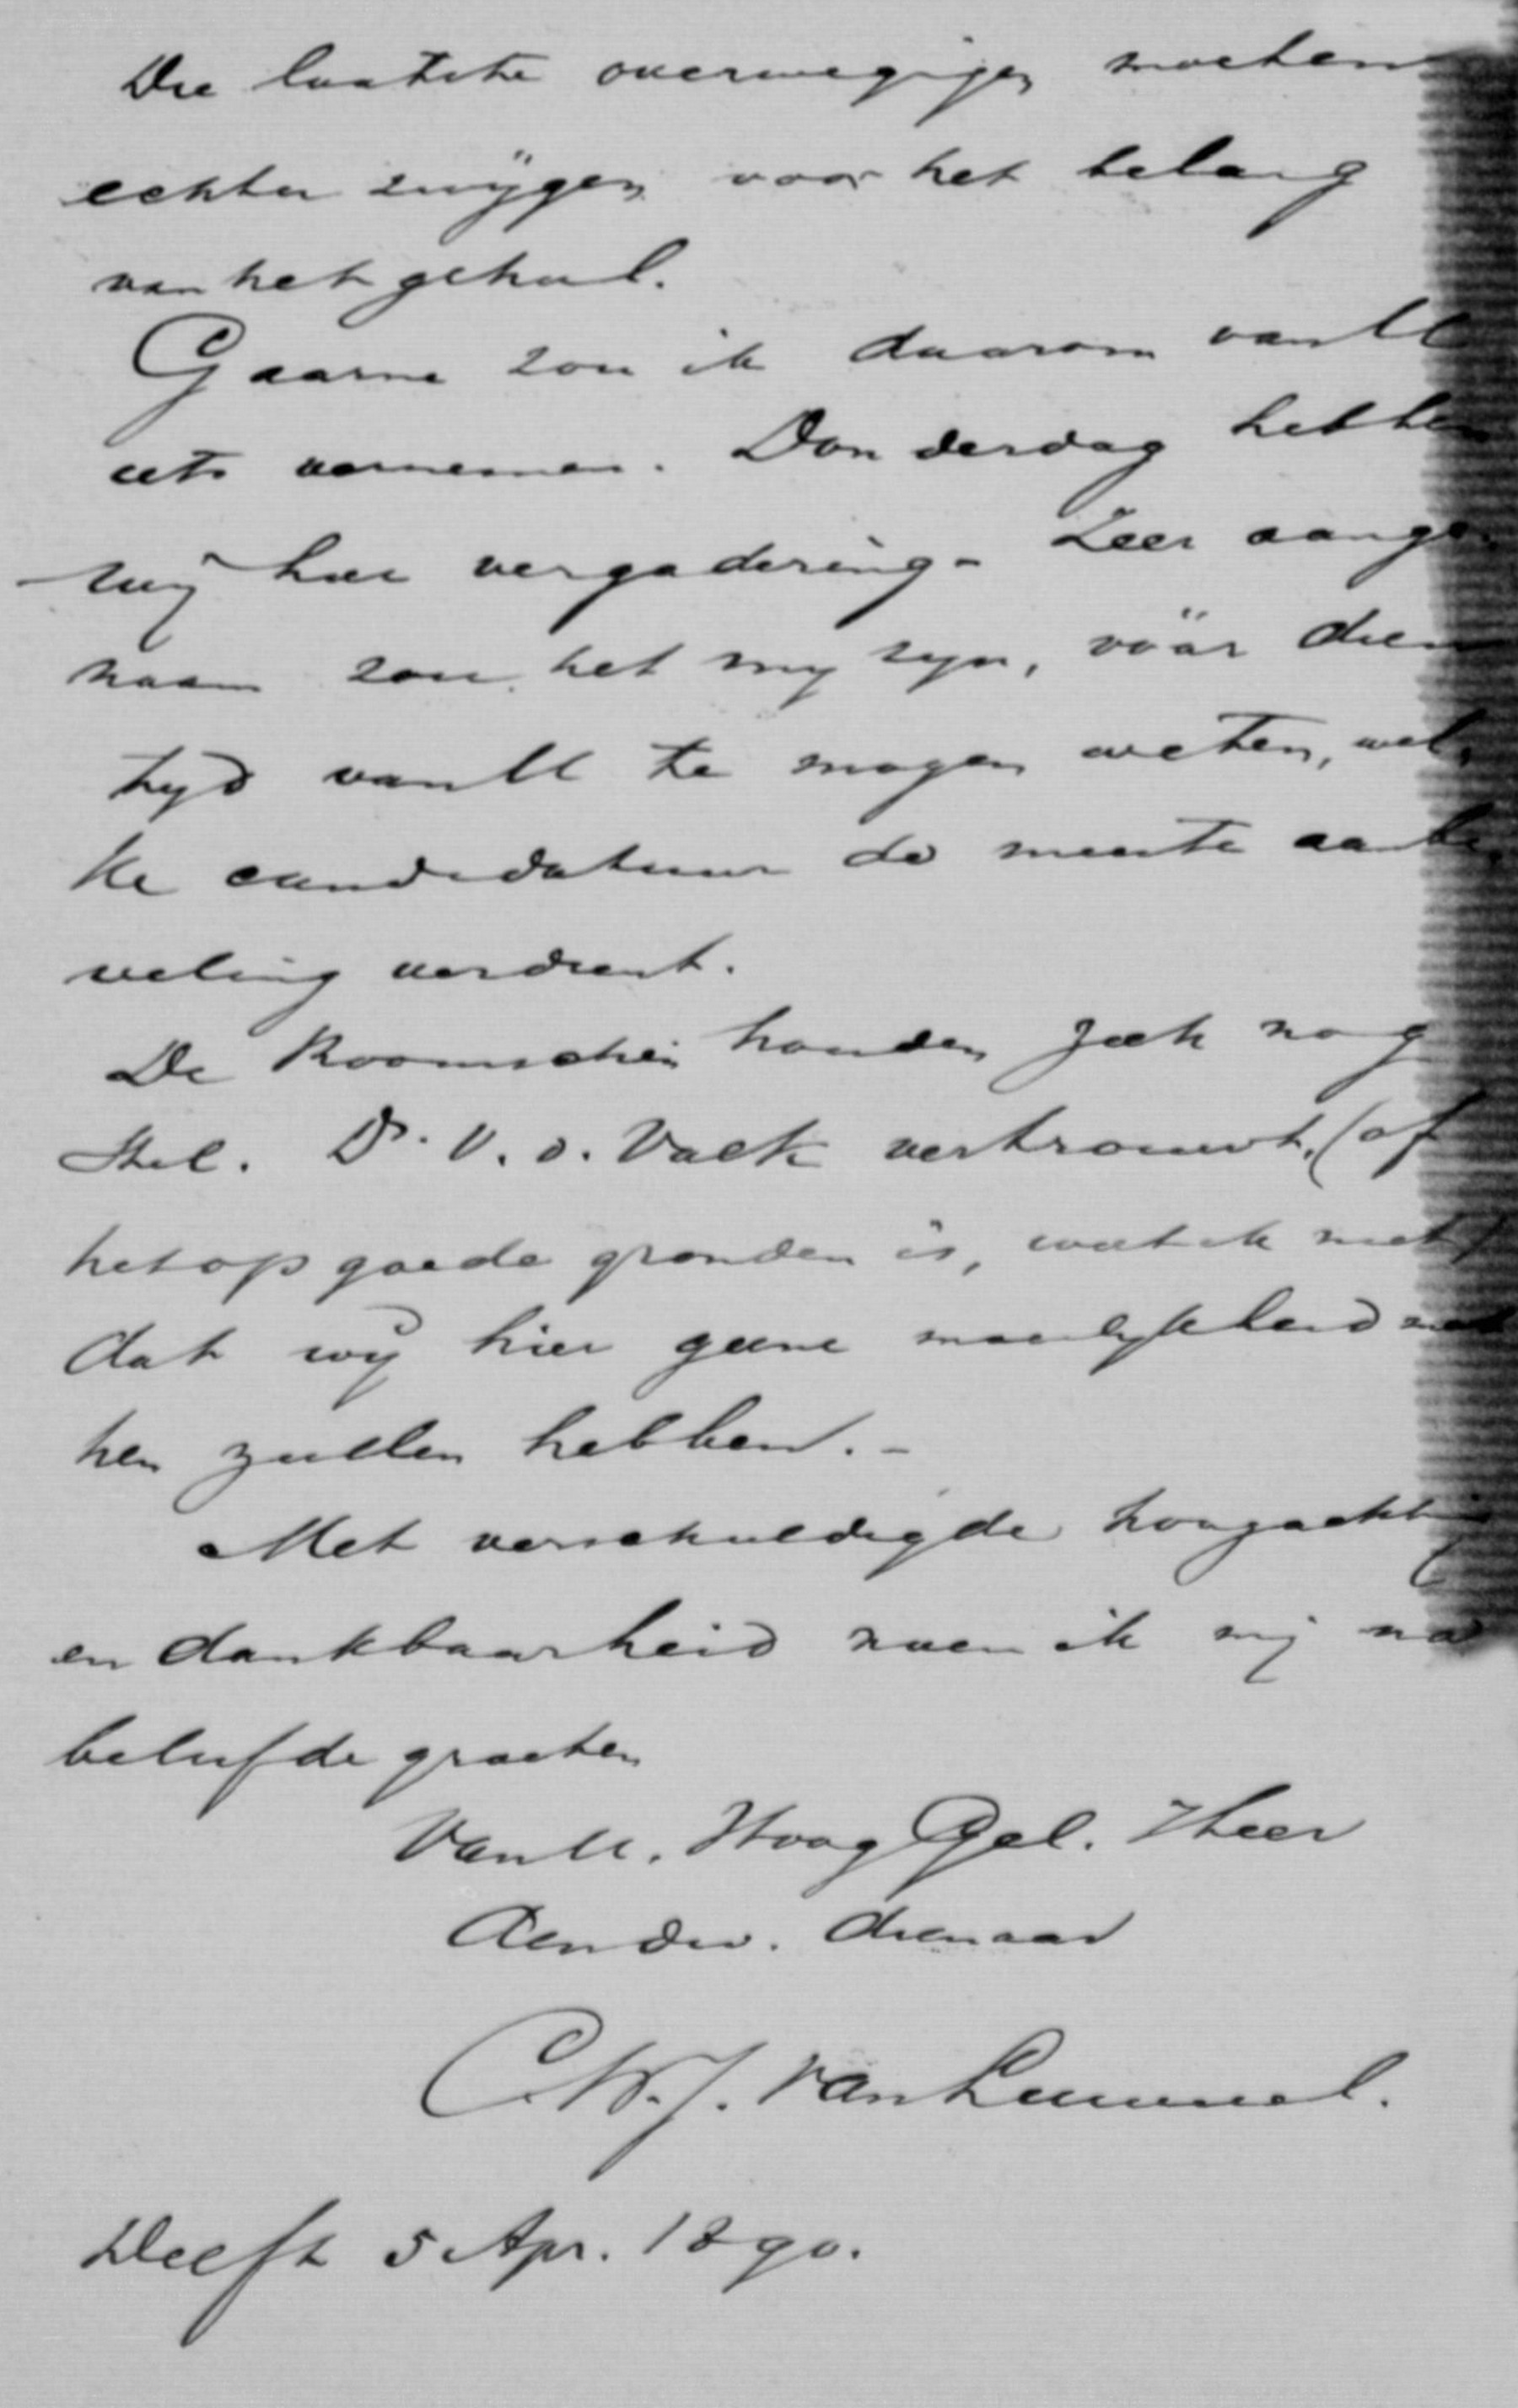 Die laatste overwegigen moeten
echter zwijgen voor het belang
van het geheel.
Gaarne zou ik daarom van U
iets vernemen. Donderdag hebben
wij hier vergadering - Zeer aange-
naam zou het mij zijn, vóór dien
tijd van U te mogen weten, wel-
ke candidatuur de meeste aanbe-
veling verdient.
De Roomschen houden zich nog
stil. Dr. V. d. Valk vertrouwt, (of
het op goede gronden is, weet ik niet)
dat wij hier geene moeilijkheid met
hen zullen hebben. -
Met verschuldigde hoogachting
en dankbaarheid noem ik mij na
beleefde groeten
Van U. Hoog Gel. Heer
dienaar
C.W.J. van Lummel.
Delft 5 Apr. 1890.